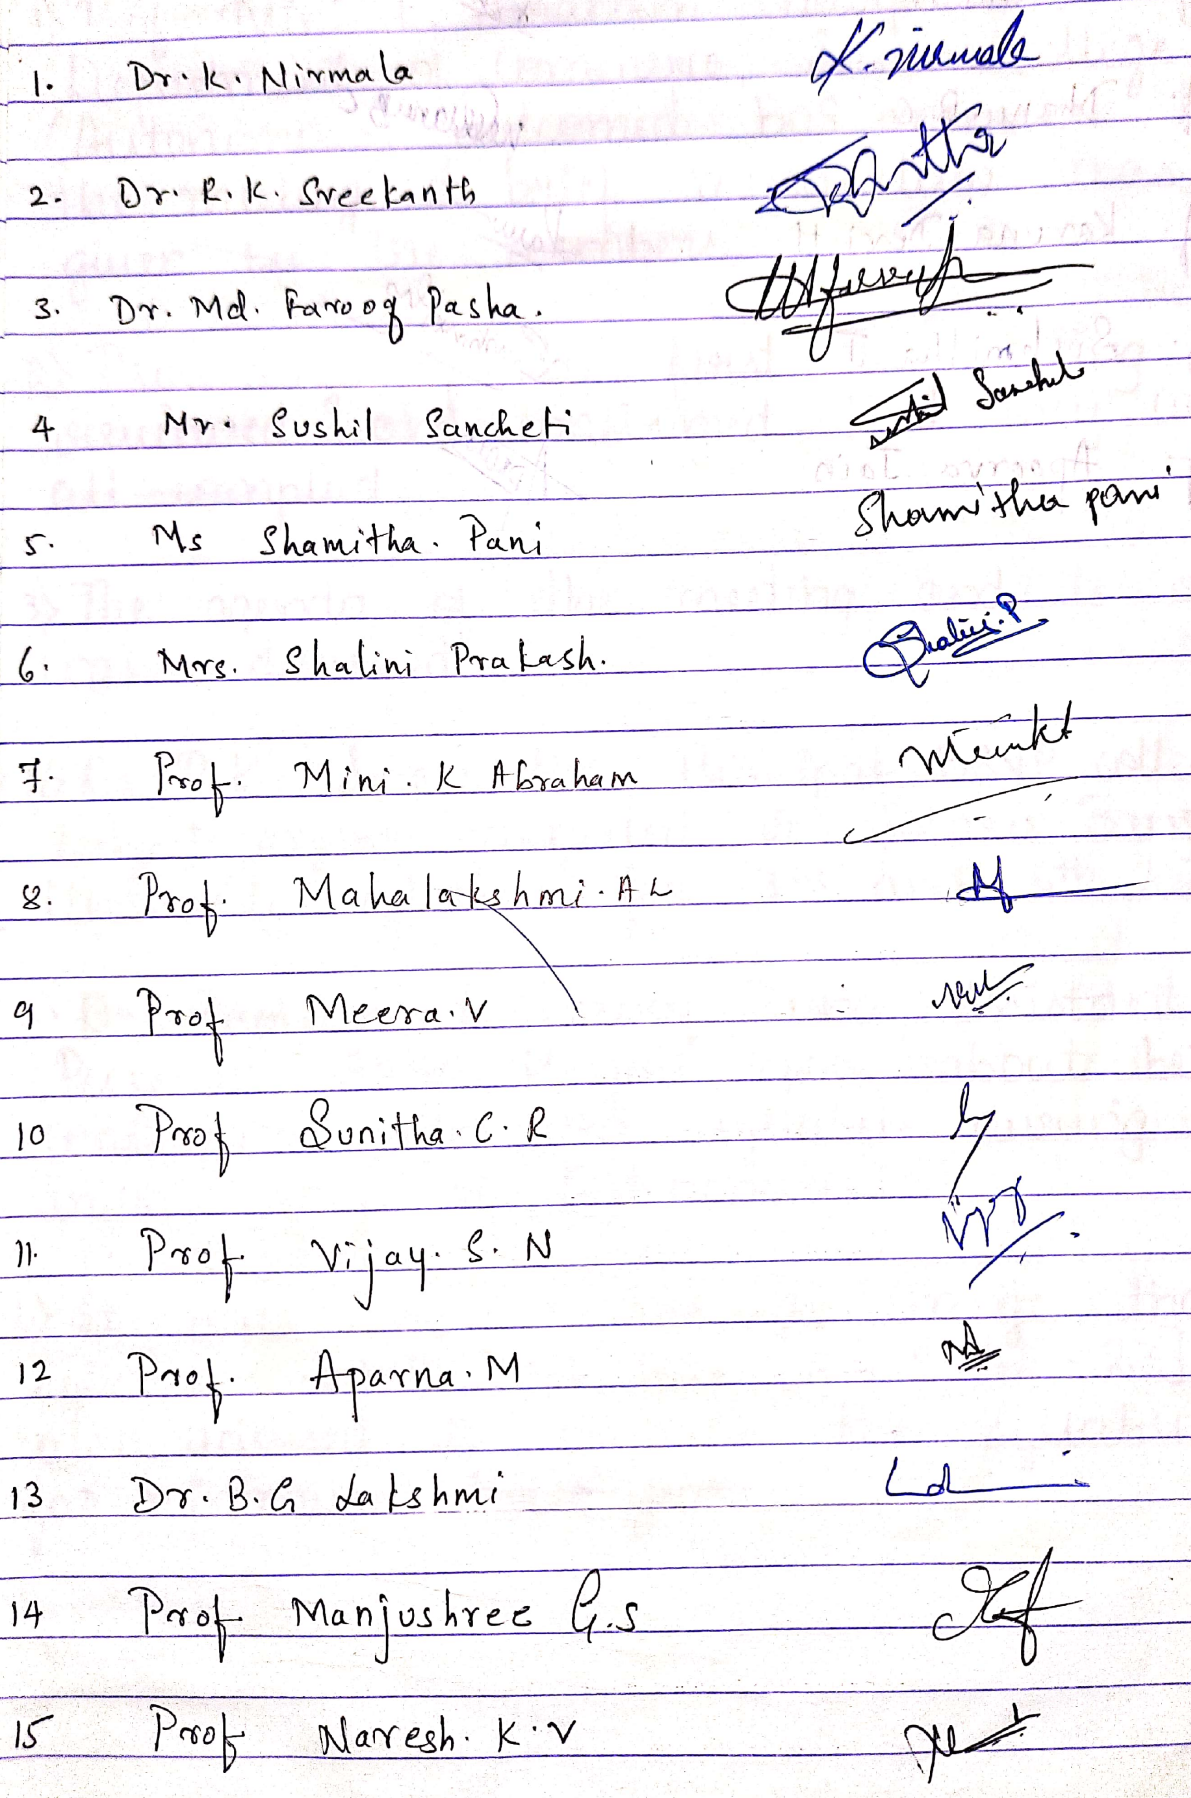 1. Dr. K. Nirmala K. Nirmala
2. Dr. R. K. Sreekanth
3. Dr. Md. Farooq Pasha.
4 Mr. Sushil Sancheti Sushil Sancheti
5. Ms Shamitha. Pani Shamitha pani
6. Mrs. Shalini Prakash. Shalini.P
7. Prof. Mini. K Abraham
8. Prof. Mahalakshmi. A L
9 Prof Meera. V
10 Prof Sunitha. C. R
11. Prof Vijay. S. N
12 Prof. Aparna. M
13 Dr. B. G Lakshmi
14 Prof Manjushree G.S
15 Prof Naresh. K.V